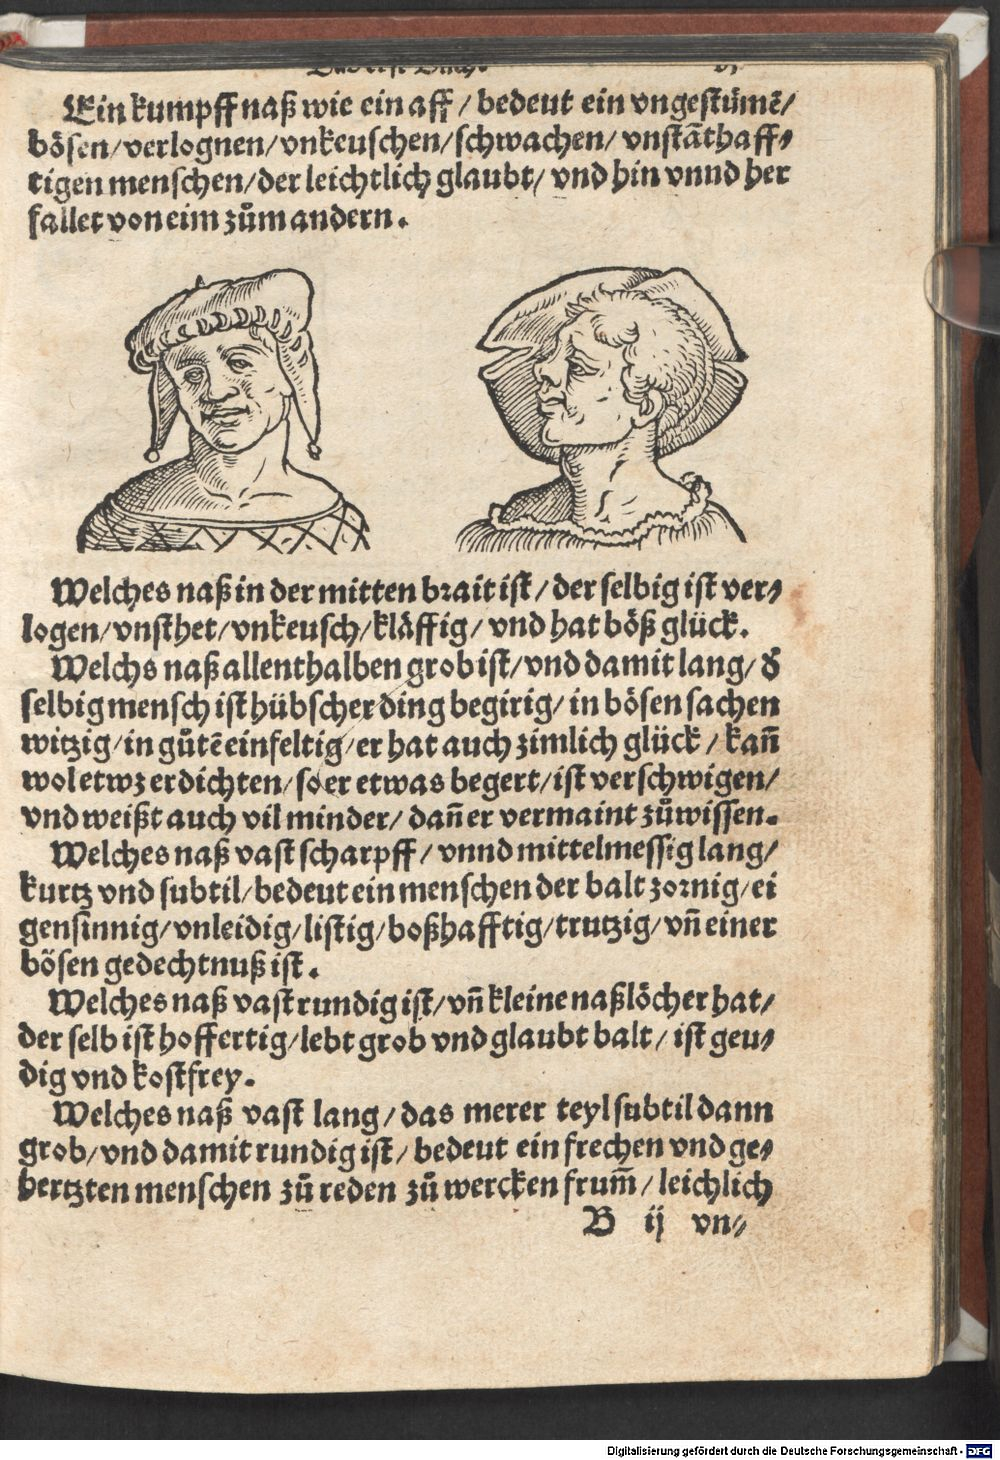 Das erst Buch.
Ein kumpff naß wie ein aff / bedeut ein vngestümē/
bösen/verlognen/vnkeuschen/schwachen/ vnstāthaff⸗
tigen menschen/der leichtlich glaubt/ vnd hin vnnd her
fallet von eim zům andern.
Welches naß in der mitten brait ist / der selbig ist ver⸗
logen/vnsthet/vnkeusch/kläffig/ vnd hat böß glück.
Welchs naß allenthalben grob ist/vnd damit lang/ d̄
selbig mensch ist hübscher ding begirig/ in bösen sachen
witzig/in gůtē einfeltig/er hat auch zimlich glück / kan̄
wol etwz erdichten/so er etwas begert/ist verschwigen/
vnd weißt auch vil minder/ dan̄ er vermaint zůwissen.
Welches naß vast scharpff/ vnnd mittelmessig lang/
kurtz vnd subtil/bedeut ein menschen der balt zornig/ei
gensinnig/vnleidig/listig/boßhafftig/trutzig/vn̄ einer
bösen gedechtnuß ist.
Welches naß vast rundig ist/vn̄ kleine naßlöcher hat/
der selb ist hoffertig/lebt grob vnd glaubt balt/ ist geu⸗
dig vnd kostfrey.
Welches naß vast lang/das merer teyl subtil dann
grob/vnd damit rundig ist/ bedeut ein frechen vnd ge⸗
hertzten menschen zů reden zů wercken frum̄/ leichlich
B ij vn⸗
Digitalisierung gefördert durch die Deutsche Forschungsgemeinschaft - DFG